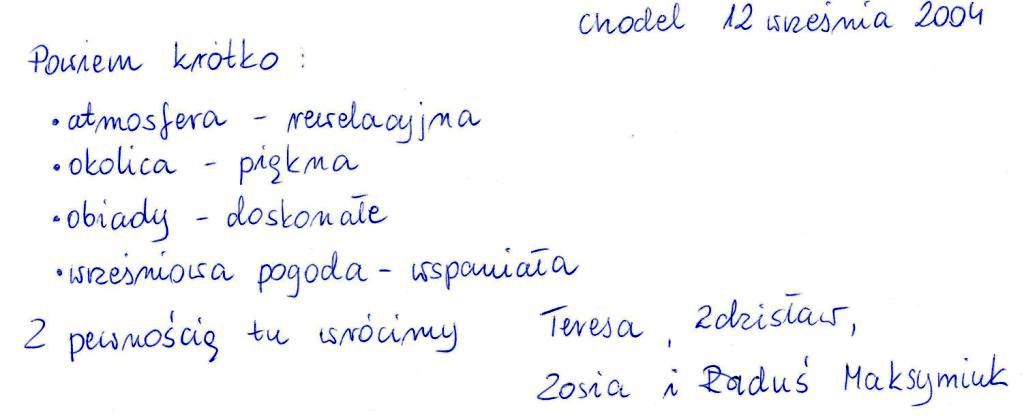 Chodel 12 września 2004
Powiem krótko :
• atmosfera - rewelacyjna
• okolica - piękna
• obiady - doskonałe
• wrześniowa pogoda - wspaniała
Z pewnością tu wrócimy
Teresa, Zdzisław,
Zosia i Raduś Maksymiuk